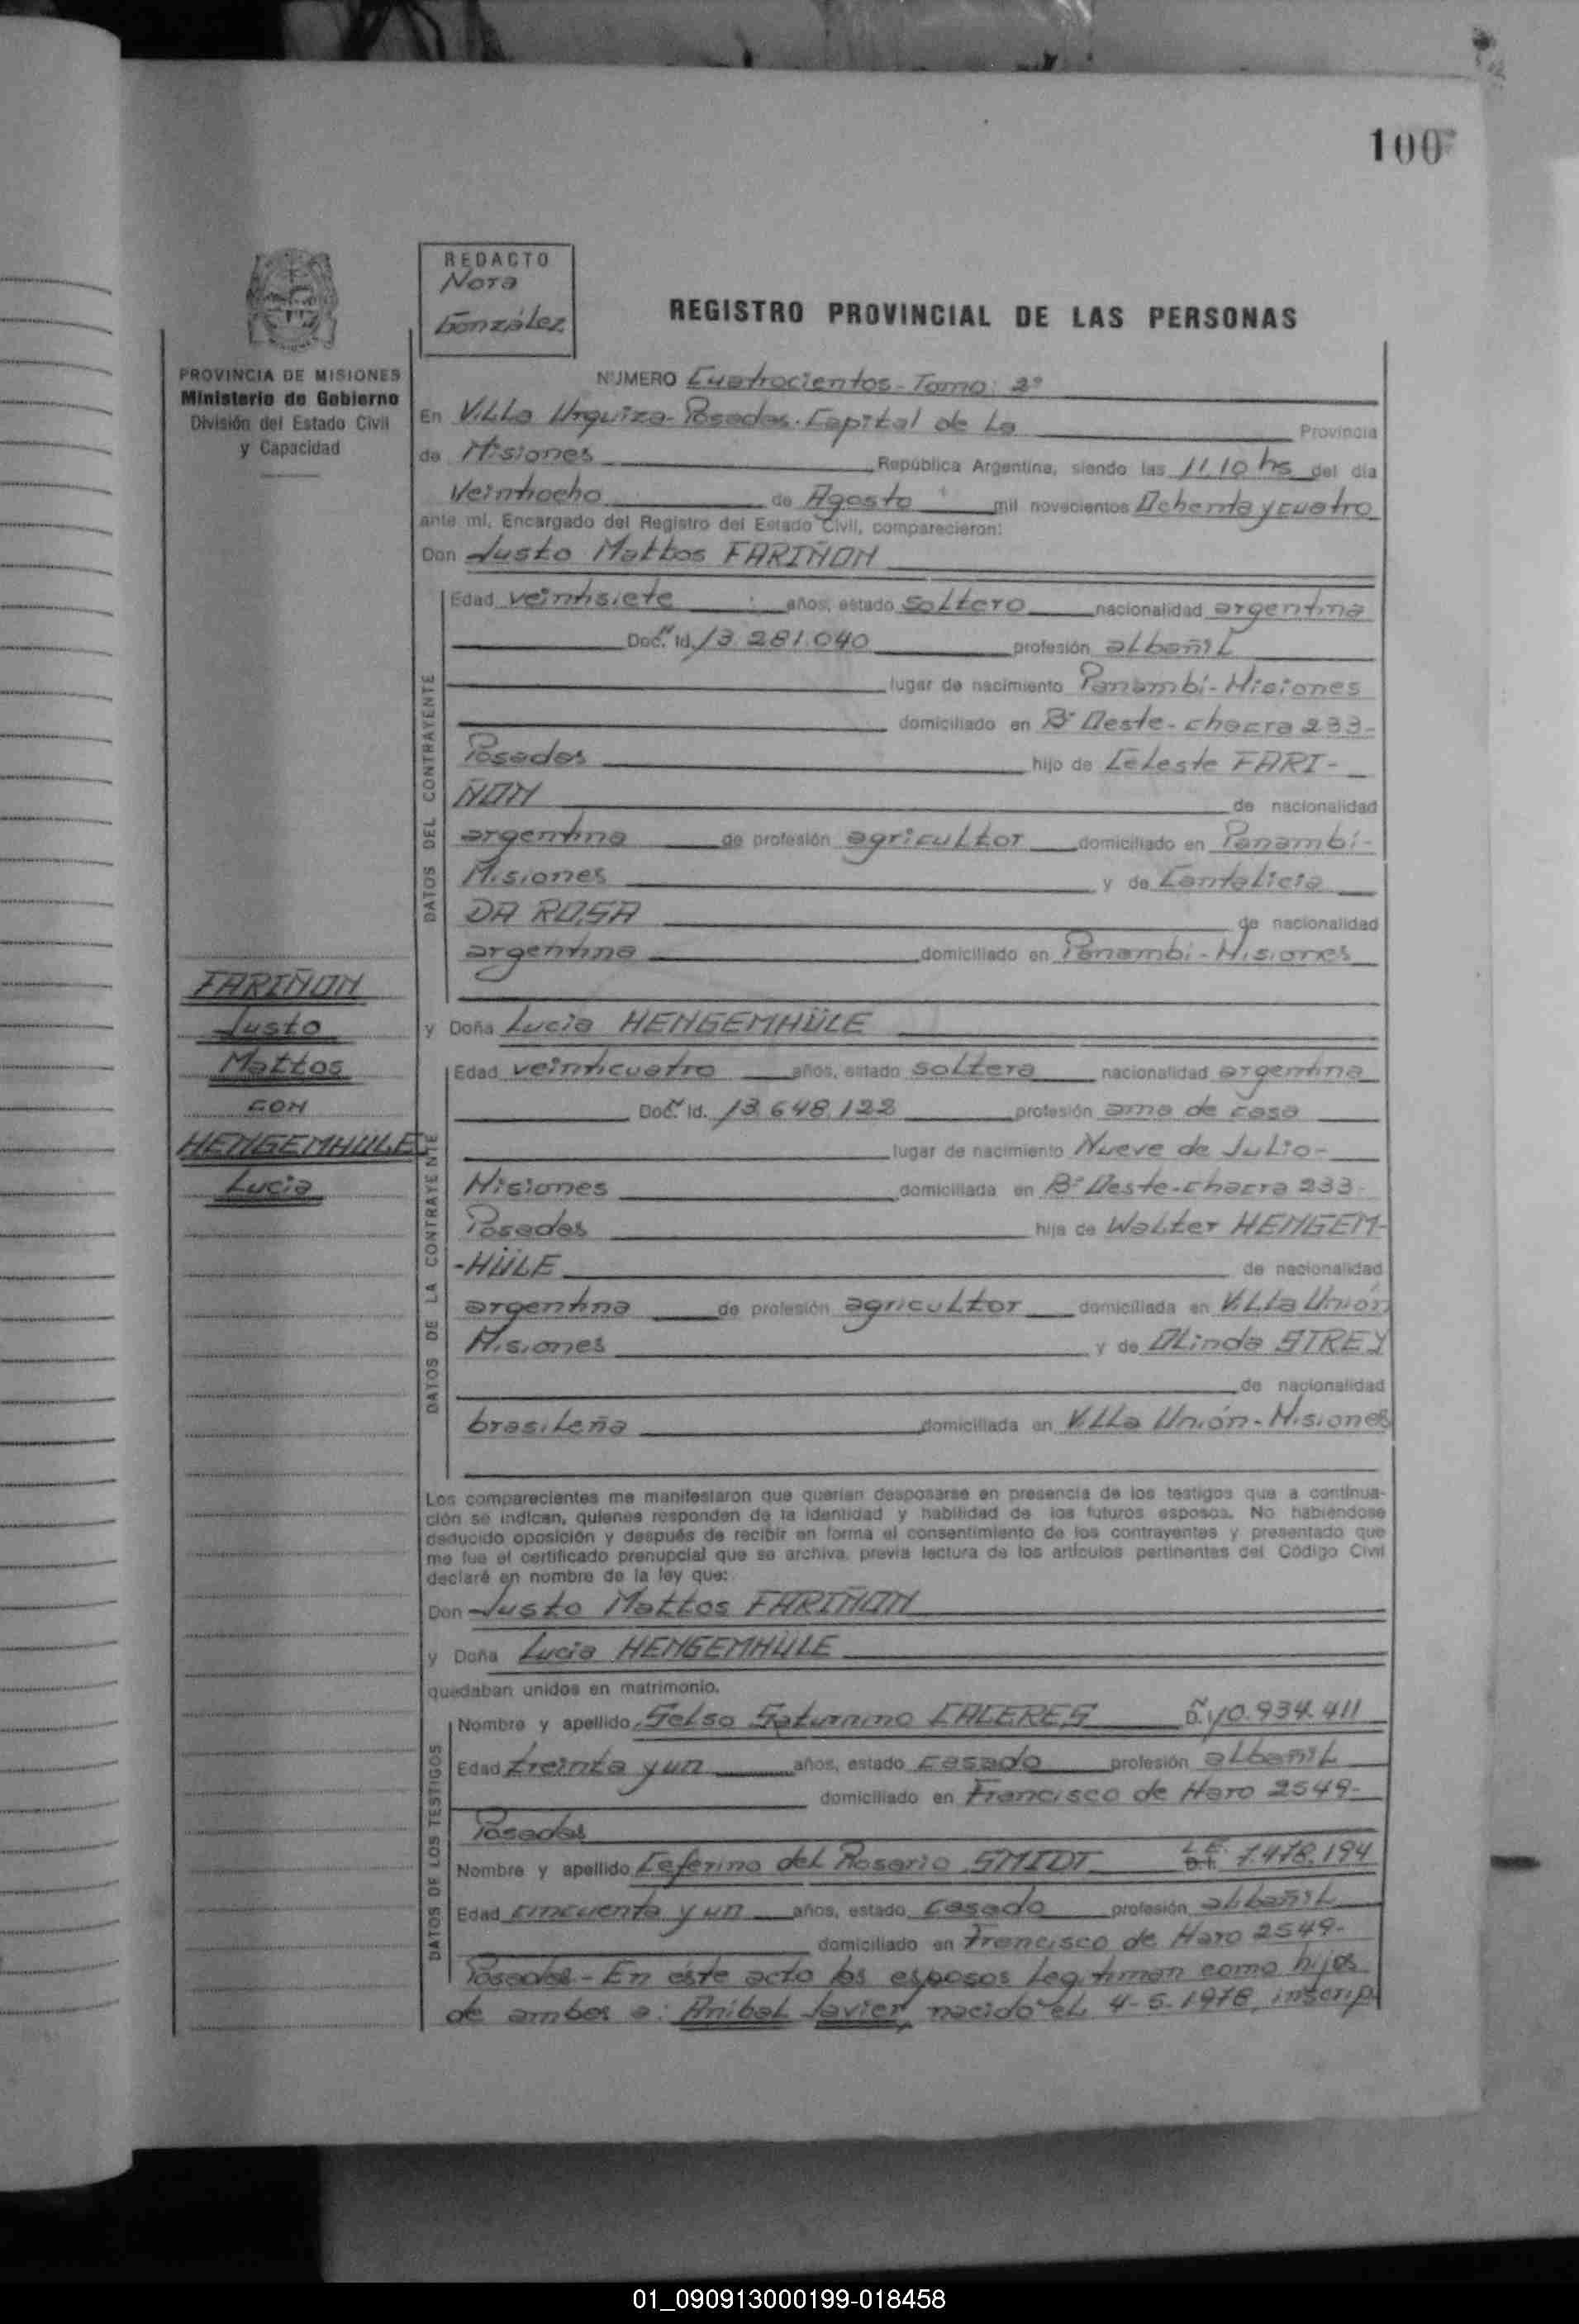 100
REDACTO
Nora
González
REGISTRO PROVINCIAL DE LAS PERSONAS
PROVINCIA DE MISIONES
Ministerio de Gobierno
División del Estado Civil
y Capacidad
NUMERO Cuatrocientos - Tomo: 2º
En Villa Urquiza - Posadas. Capital de La Provincia
de Misiones República Argentina, siendo las 11,10 hs del día
Veintiocho de Agosto mil novecientos Ochenta y cuatro
ante mi, Encargado del Registro del Estado Civil, comparecieron:
Don Justo Mattos FARIÑON
DATOS DEL CONTRAYENTE
Edad veintisiete años, estado soltero nacionalidad argentina
Doc. Id. 13.281.040 profesión albañil
lugar de nacimiento Panambí - Misiones
domiciliado en Bº Oeste - chacra 233 -
Posadas hijo de Celeste FARI -
ÑON de nacionalidad
argentina de profesión agricultor domiciliado en Panambí -
Misiones y de Cantalicia
DA ROSA de nacionalidad
argentina domiciliado en Panambí - Misiones
FARIÑON
Justo
Mattos
CON
HENGEMHULE
Lucia
y Doña Lucia HENGEMHÜLE
DATOS DE LA CONTRAYENTE
Edad veinticuatro años, estado soltera nacionalidad argentina
Doc. Id. 13.648.122 profesión ama de casa
lugar de nacimiento Nueve de Julio -
Misiones domiciliada en Bº Oeste - chacra 233 -
Posadas hija de Walter HENGEM-
-HÜLE de nacionalidad
argentina de profesión agricultor domiciliada en Villa Unión
Misiones y de Olinda STREY
de nacionalidad
brasileña domiciliada en Villa Unión - Misiones
Los comparecientes me manifestaron que querían desposarse en presencia de los testigos que a continua-
ción se indican, quienes responden de la identidad y habilidad de los futuros esposos. No habiéndose
deducido oposición y después de recibir en forma el consentimiento de los contrayentes y presentado que
me fue el certificado prenupcial que se archiva, previa lectura de los artículos pertinentes del Código Civil
declaré en nombre de la ley que:
Don Justo Mattos FARIÑON
y Doña Lucia HENGEMHÜLE
quedaban unidos en matrimonio.
DATOS DE LOS TESTIGOS
Nombre y apellido Selso Saturnino CACERES 10.934.411
Edad treinta y un años, estado casado profesión albañil
domiciliado en Francisco de Haro 2549 -
Posadas
Nombre y apellido Ceferino del Rosario SMIDT L.E. 7.478.194
Edad cincuenta y un años, estado casado profesión albañil
domiciliado en Francisco de Haro 2549 -
Posadas - En éste acto los esposos legitiman como hijos
de ambos a: Anibal Javier, nacido el 4-5-1978, inscrip
01_090913000199-018458